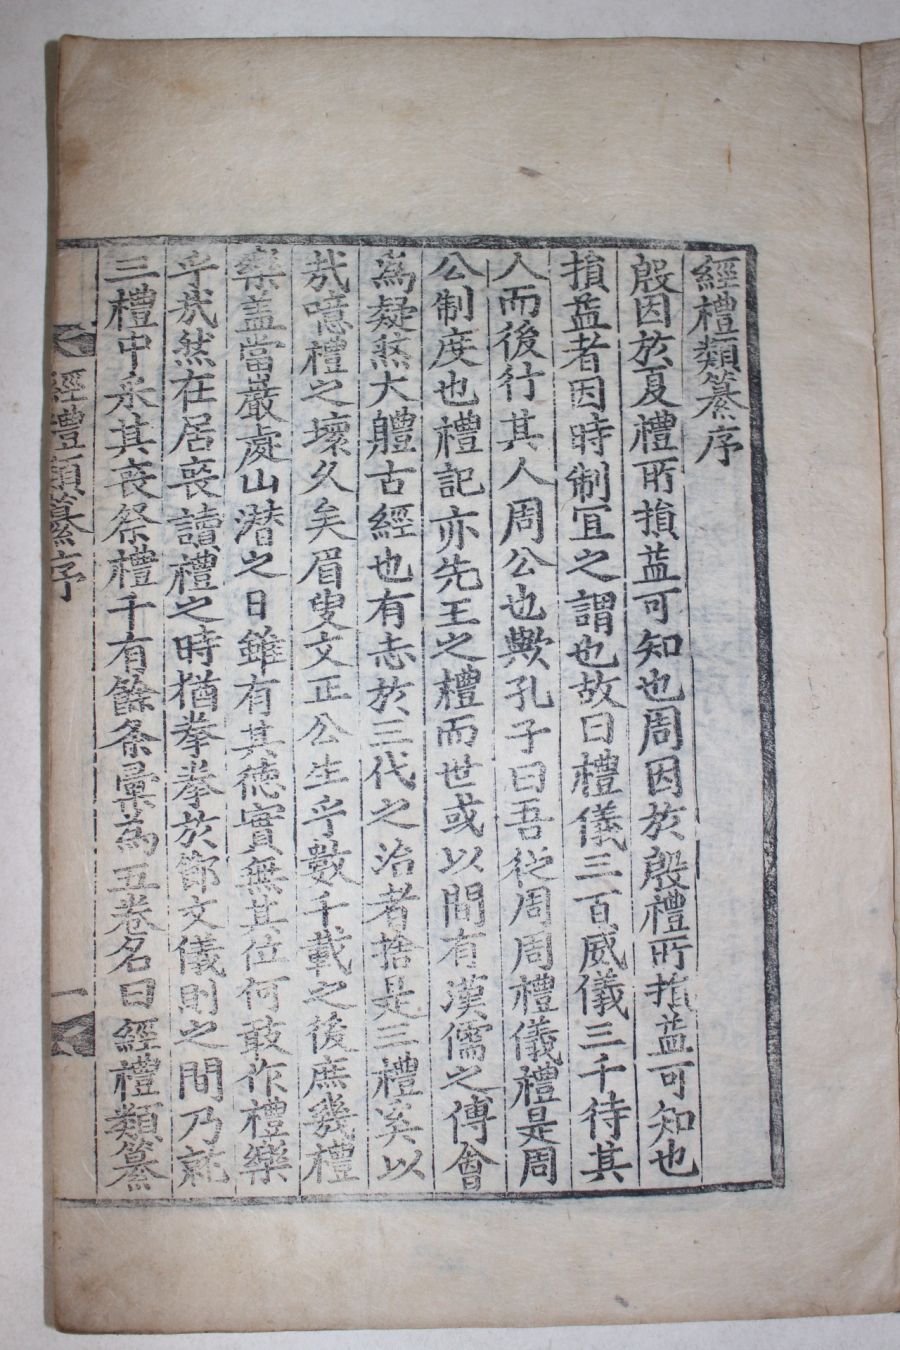 經禮類纂序
殷因於夏禮所損益可知也周因於殷禮所損益可知也
損益者因時制宜之謂也故曰禮儀三百威儀三千待其
人而後行其人周公也歟孔子曰吾從周周禮儀禮是周
公制度也禮記亦先王之禮而世或以間有漢儒之傅會
爲疑然大軆古經也有志於三代之治者捨是三禮奚以
㢤噫禮之壞久矣眉叟文正公生乎數千載之後庶幾禮
樂盖當嚴處山潜之日雖有其德實無其位何敢作禮樂
乎㢤然在居喪讀禮之時猶拳拳於節文儀則之間乃就
三禮中采其喪祭禮千有餘条彙爲五卷名曰經禮類纂
經禮類纂序
一